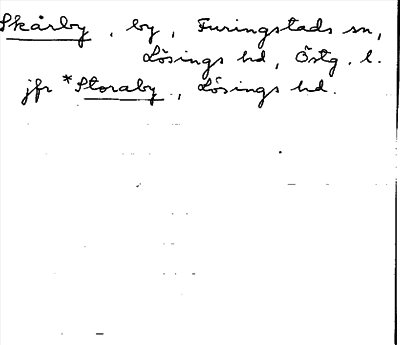 Skårby, by, Furingstads sn,
Lösings hd, Östg. l.
jfr *Storaby, Lösings hd.